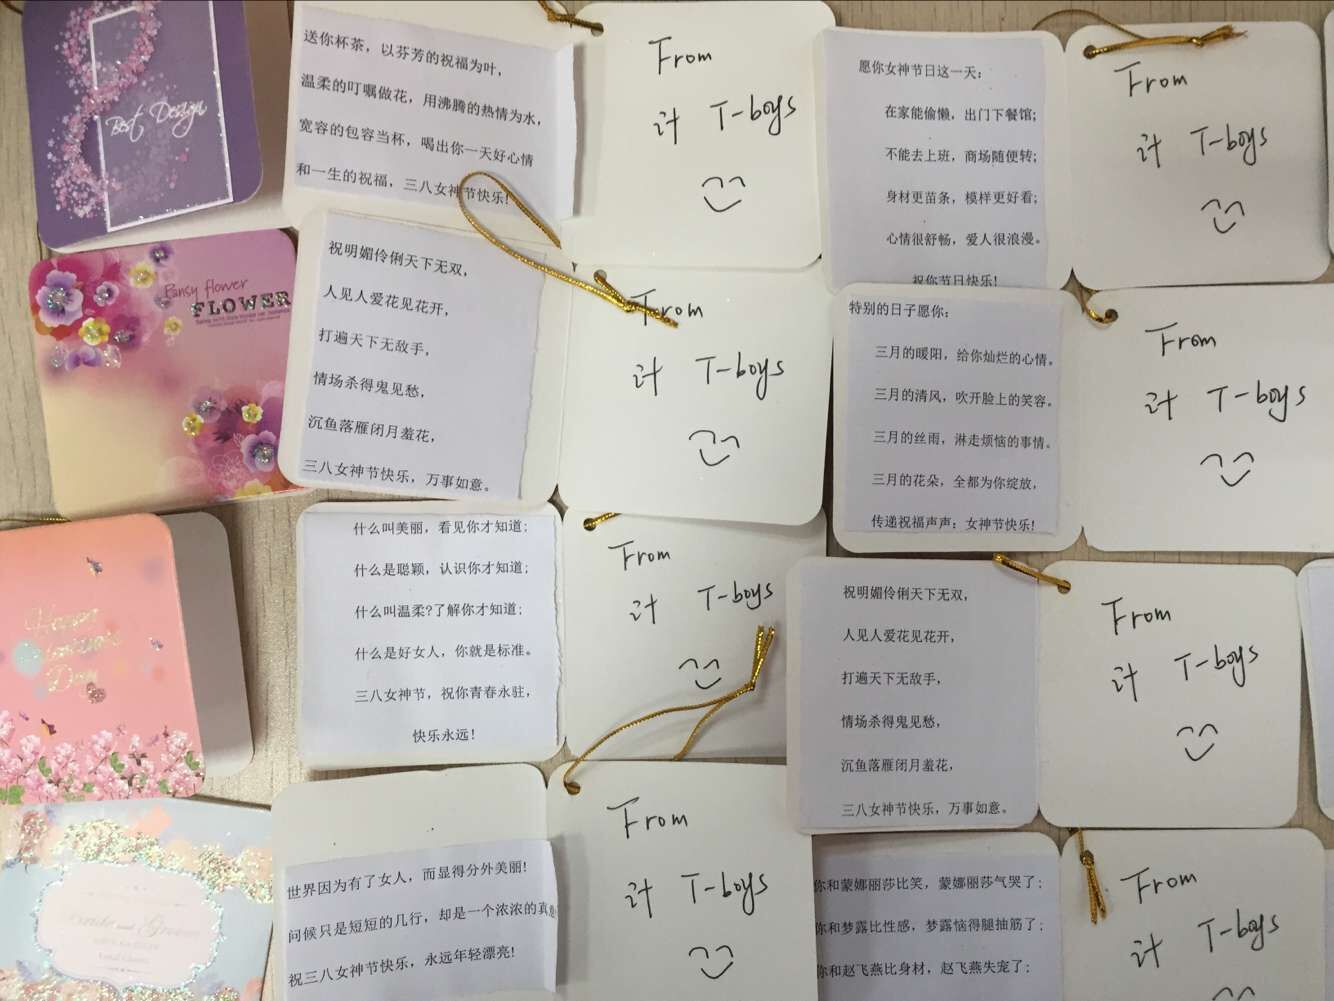 Best Design
送你杯茶，以芬芳的祝福为叶，
温柔的叮嘱做花，用沸腾的热情为水，
宽容的包容当杯，喝出你一天好心情
和一生的祝福，三八女神节快乐!
From
计 T-boys
愿你女神节日这一天:
在家能偷懒，出门下餐馆;
不能去上班，商场随便转;
身材更苗条，模样更好看;
心情很舒畅，爱人很浪漫。
祝你节日快乐!
From
计 T-boys
Pansy flower
FLOWER
祝明媚伶俐天下无双,
人见人爱花见花开,
打遍天下无敌手,
情场杀得鬼见愁,
沉鱼落雁闭月羞花,
三八女神节快乐，万事如意。
From
计 T-boys
特别的日子愿你:
三月的暖阳，给你灿烂的心情。
三月的清风，吹开脸上的笑容。
三月的丝雨，淋走烦恼的事情。
三月的花朵，全都为你绽放,
传递祝福声声: 女神节快乐!
From
计 T-boys
Happy
Day
什么叫美丽，看见你才知道;
什么是聪颖，认识你才知道;
什么叫温柔?了解你才知道;
什么是好女人，你就是标准。
三八女神节，祝你青春永驻,
快乐永远!
From
计 T-boys
祝明媚伶俐天下无双,
人见人爱花见花开,
打遍天下无敌手,
情场杀得鬼见愁,
沉鱼落雁闭月羞花,
三八女神节快乐，万事如意。
From
计 T-boys
and
世界因为有了女人，而显得分外美丽!
问候只是短短的几行，却是一个浓浓的真
祝三八女神节快乐，永远年轻漂亮!
From
计 T-boys
你和蒙娜丽莎比笑，蒙娜丽莎气哭了;
你和梦露比性感，梦露恼得腿抽筋了;
你和赵飞燕比身材，赵飞燕失宠了;
From
计 T-boys